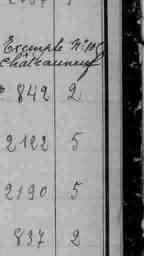 Exemple N° 10
Châteauneuf
842 2
2122 5
2190 5
837 2